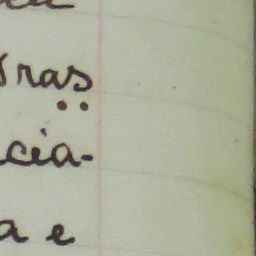 ras
cia-
a e